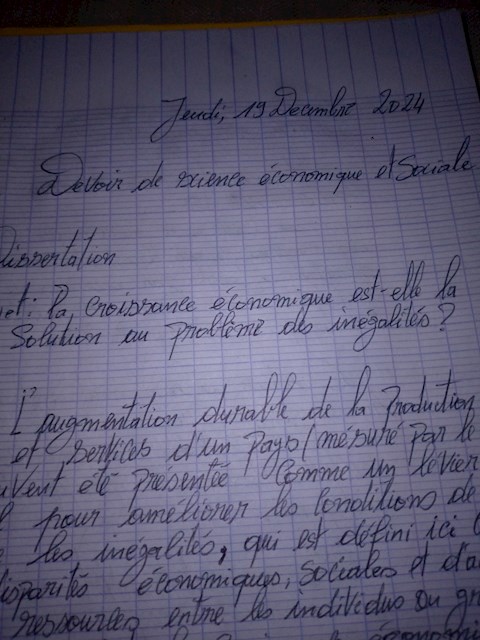 Jeudi, 19 Decembre 2024
Devoir de science économique et Sociale
Dissertation
la croissance économique est-elle la
Solution au problème des inégalités?
L'augmentation durable de la production
et services d'un pays (mésuré par le
été présentée comme un levier
pour améliorer les conditions de
les inégalités, qui est défini ici
disparités économiques, sociales et
ressources entre les individus ou